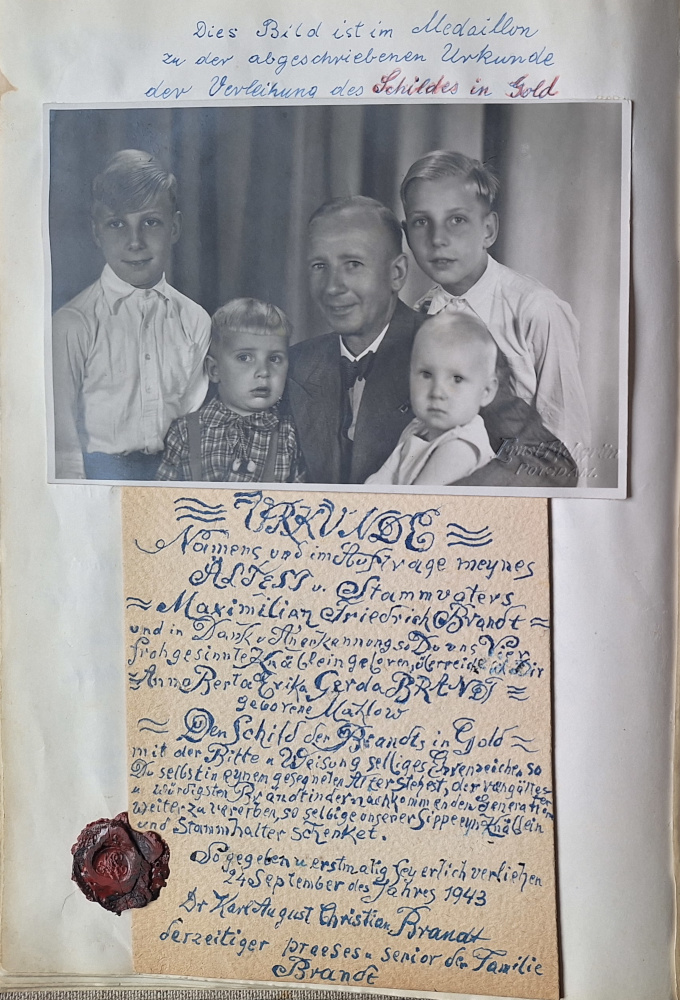 Dies Bild ist im Medaillon
zu der abgeschriebenen Urkunde
der Verleihung des Schildes in Gold
URKUNDE
Namens und im Auftrage meynes
ÄLTEST u. Stammvaters
Maximilian Friedrich Brandt
und in Dank u Anerkennung so Du uns Vier
frohgesinnte Knäblein geboren, überreich ich Dir
Anna Berta Erika Gerda BRANDT
geborene Mahlow
Den Schild der Brandts in Gold
mit der Bitte u Weisung selbiges Ehrenzeichen, so
Du selbst in eynem gesegneten Alter stehest, der
u würdigsten Brandtin der nachkommenden Generation
weiter zu vererben, so selbige onserer Sippe eyn Knäblein
und Stammhalter schenket.
So gegeben u erstmalig feyerlich verliehen
24 September des Jahres 1943
Dr Karl August Christian Brandt
derzeitiger praeses u senior der Familie
Brandt